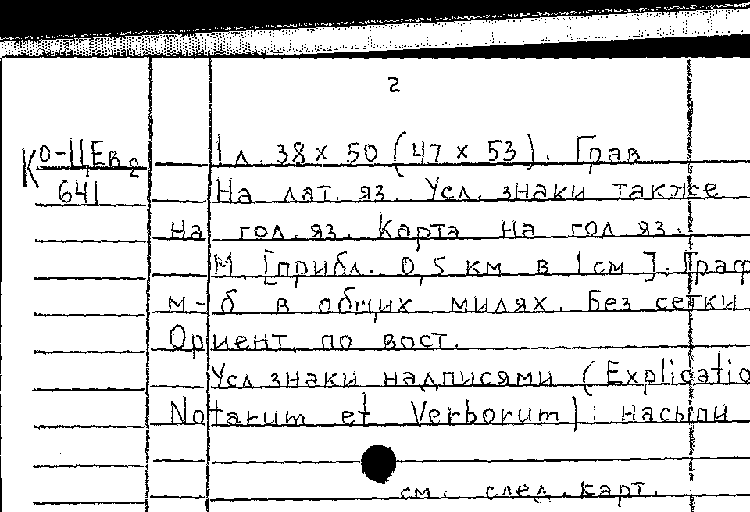 2
К О-ЦЕв 2
641
1 л. 38 х 50 (47 х 53). Грав
На лат. яз. Усл. знаки также
на гол. яз. Карта на гол яз.
М [прибл. 0,5 км в 1 см]. Граф
м-б в общих милях. Без сетки
Ориент. по вост.
Усл знаки надписями (Explicatio
Notarum et Verborum): насыпи
см. след. карт.